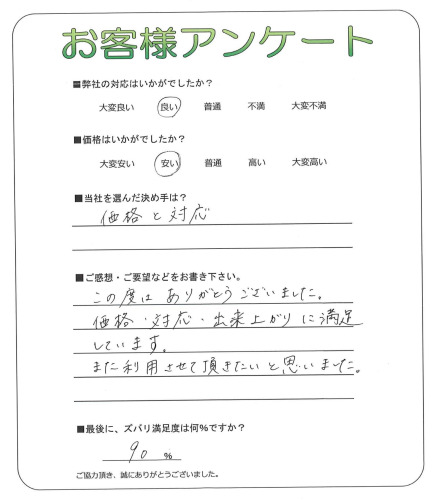 お客様アンケート
■弊社の対応はいかがでしたか?
大変良い 良い 普通 不満 大変不満
■価格はいかがでしたか?
大変安い 安い 普通 高い 大変高い
■当社を選んだ決め手は?
価格と対応
■ご感想・ご要望などをお書き下さい。
この度は ありがとうございました。
価格・対応・出来上がりに満足
しています。
また利用させて頂きたいと思いました。
■最後に、ズバリ満足度は何%ですか?
90 %
ご協力頂き、誠にありがとうございました。